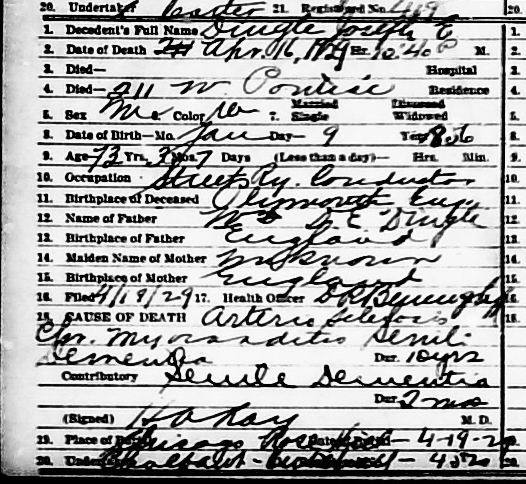 20. Undertaker 21. Registered No. 469
1. Decedent's Full Name Dingle Joseph E
2. Date of Death Apr. 16, 1929 Hr. 10:40 P M.
3. Died— Hospital
4. Died— 211 W. Pontiac Residence
5. Sex M 6. Color W 7. Married Single Divorced Widowed
8. Date of Birth—Mo. Jan Day— 9 Year 1856
9. Age 73 Yrs. 3 Mos. 7 Days (Less than a day)— Hrs. Min.
10. Occupation Street Ry. Conductor
11. Birthplace of Deceased Plymouth Eng.
12. Name of Father Dingle
13. Birthplace of Father England
14. Maiden Name of Mother Unknown
15. Birthplace of Mother England
16. Filed 4/18/29 17. Health Officer
18. CAUSE OF DEATH Arterio Sclerosis
Chr. Myocarditis Senile
Dementia Dur. 10 yrs
Contributory Senile Dementia
Dur 2 mos
(Signed) M. D.
19. Place of Burial Chicago Rose Hill — 4-19-29
20.